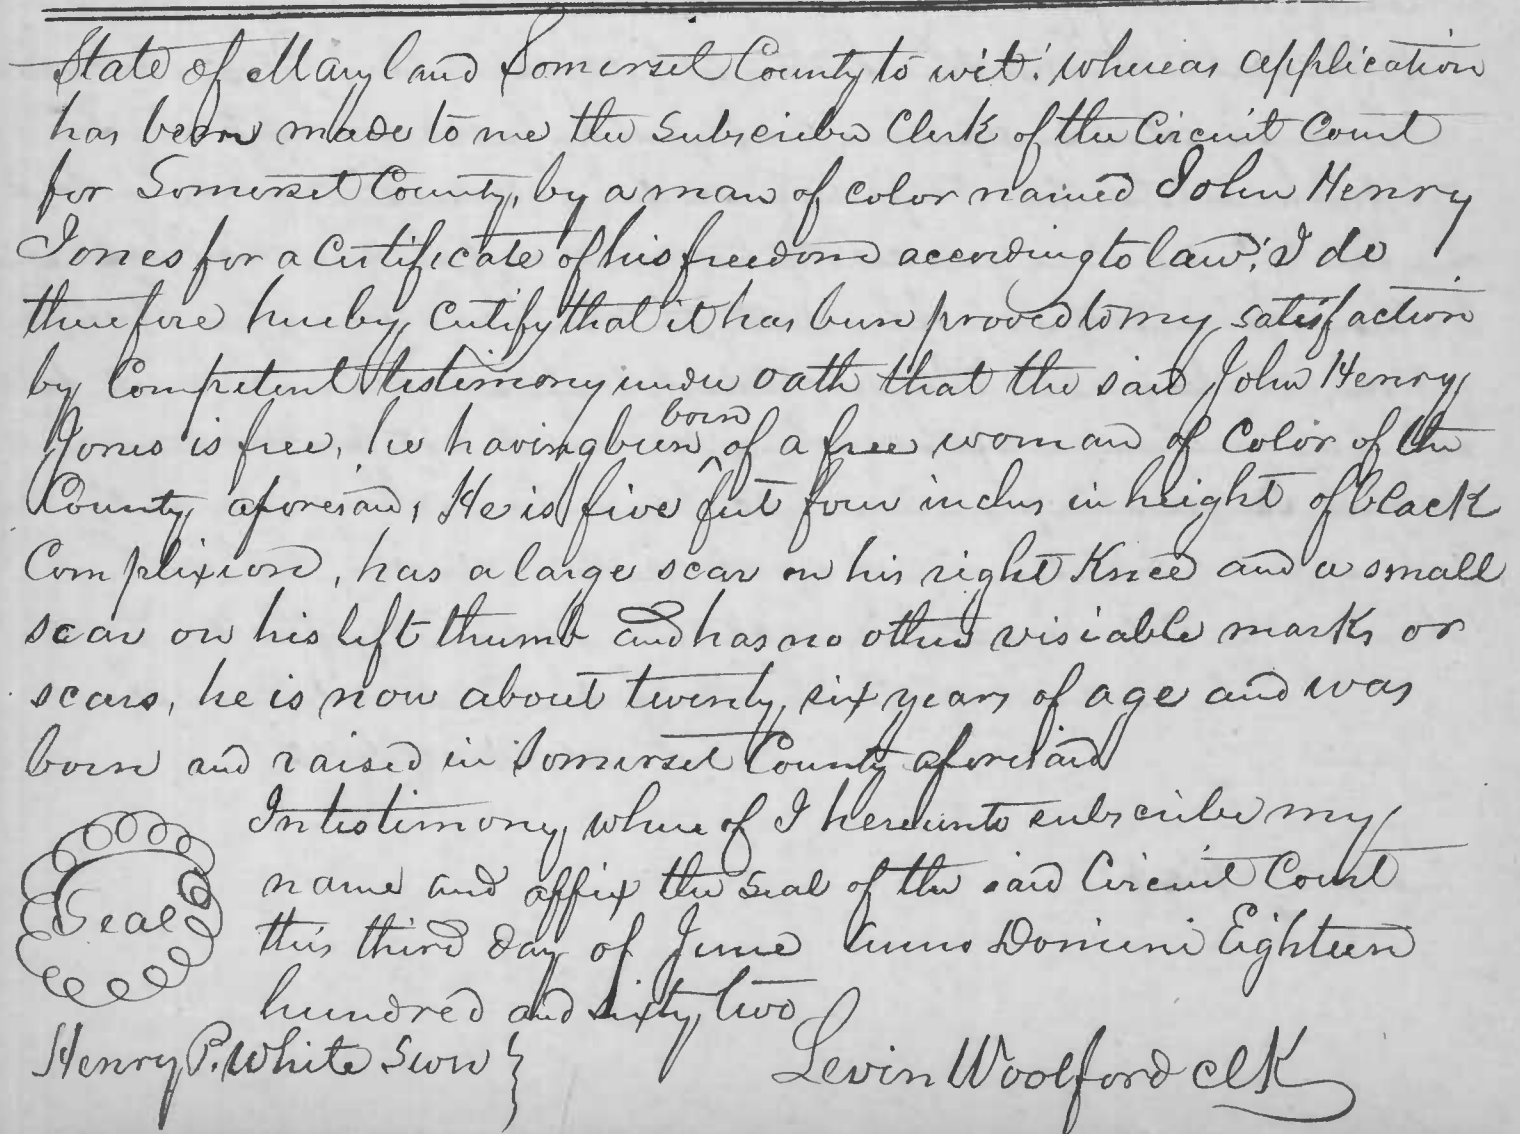 State of Maryland Somerset County to wit: whereas application
has been made to me the subscriber Clerk of the Circuit Court
for Somerset County, by a man of color named John Henry
Jones for a Certificate of his freedom according to law; I do
therefore hereby certify that it has been proved to my satisfaction
by Competent testimony under oath that the said John Henry
Jones is free, he having been born of a free woman of Color of the
County aforesaid, He is five feet four inches in height of black
Complixion, has a large scar on his right Knee and a small
scar on his left thumb and has no other visiable marks or
scars, he is now about twenty six years of age and was
born and raised in Somerset County aforesaid
In testimony where of I hereunto subscribe my
name and affix the seal of the said Circuit Court
this third day of June Anno Domini Eighteen
hundred and sixty two
Seal
Henry P. White Swor }
Levin Woolford Clk